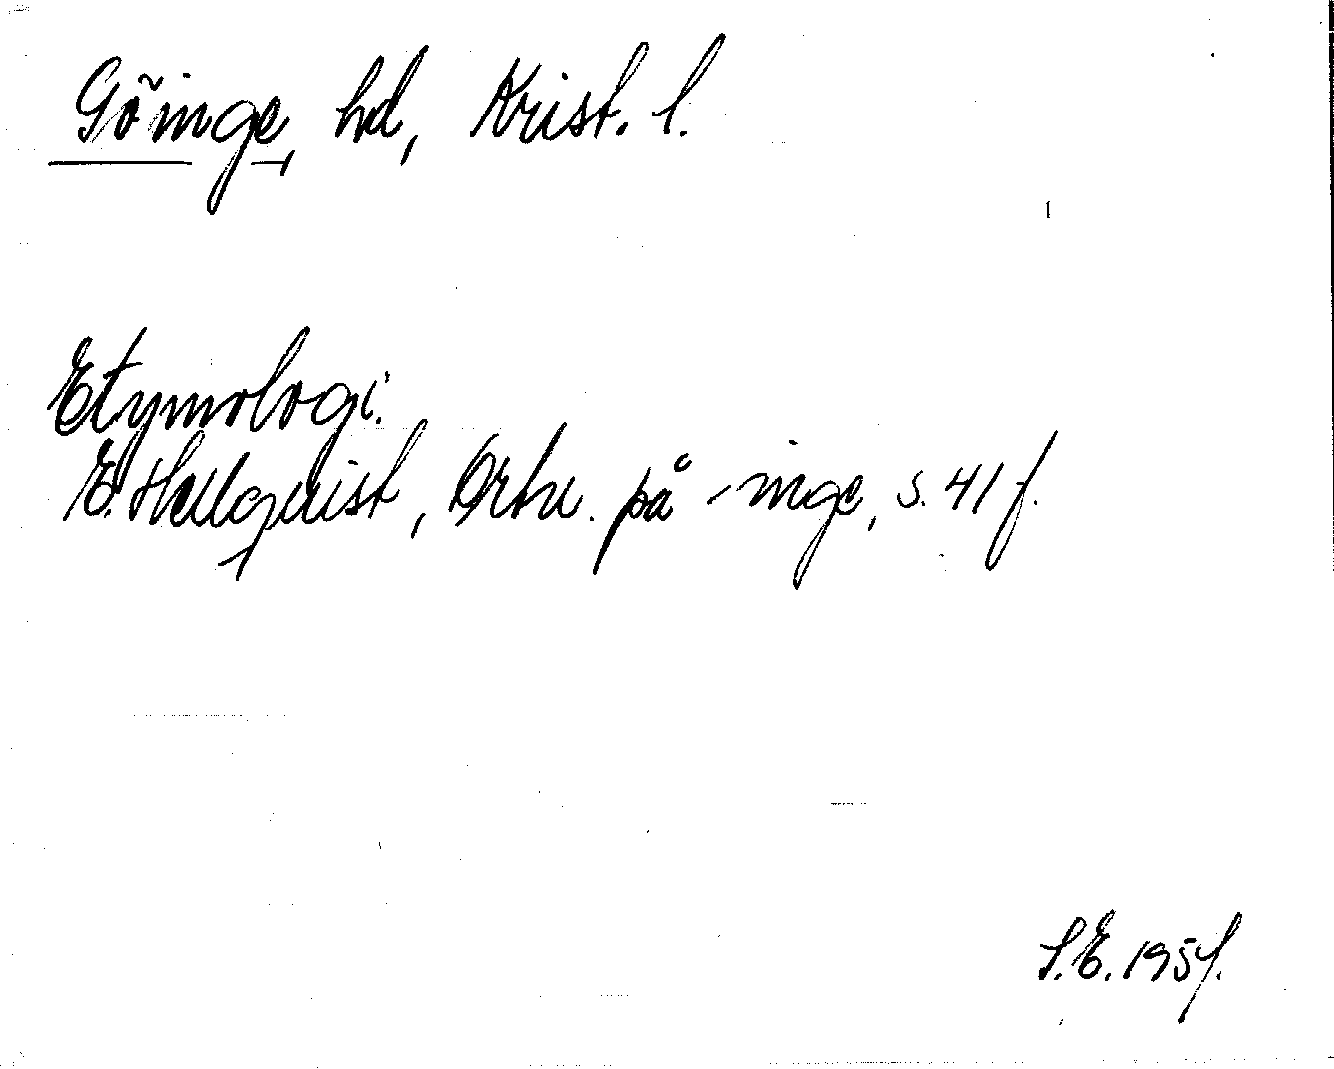 Göinge, hd, Krist. l.
Etymologi.
E. Hellquist, Ortn. på -inge, s. 41 f.
S.E. 195